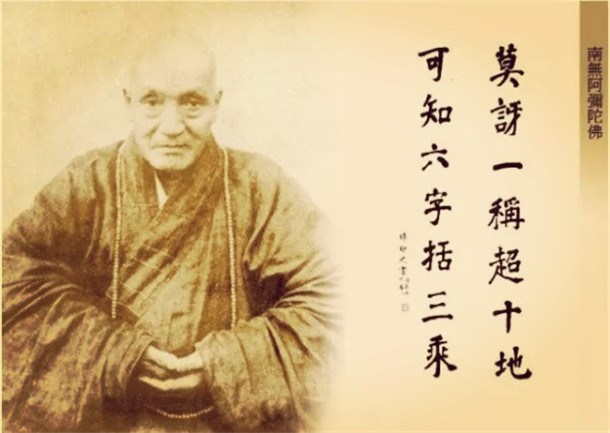 南無阿彌陀佛
莫訝一稱超十地
可知六字括三乘